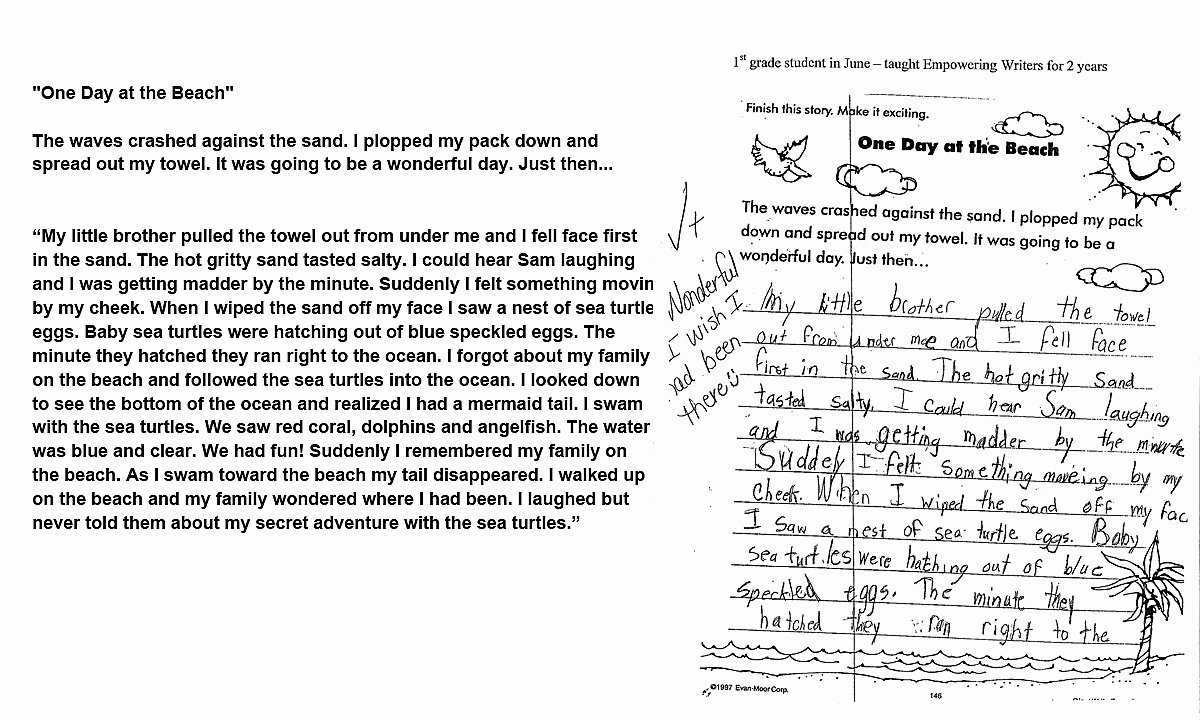 "One Day at the Beach"
The waves crashed against the sand. I plopped my pack down and
spread out my towel. It was going to be a wonderful day. Just then...
“My little brother pulled the towel out from under me and I fell face first
in the sand. The hot gritty sand tasted salty. I could hear Sam laughing
and I was getting madder by the minute. Suddenly I felt something movin
by my cheek. When I wiped the sand off my face I saw a nest of sea turtle
eggs. Baby sea turtles were hatching out of blue speckled eggs. The
minute they hatched they ran right to the ocean. I forgot about my family
on the beach and followed the sea turtles into the ocean. I looked down
to see the bottom of the ocean and realized I had a mermaid tail. I swam
with the sea turtles. We saw red coral, dolphins and angelfish. The water
was blue and clear. We had fun! Suddenly I remembered my family on
the beach. As I swam toward the beach my tail disappeared. I walked up
on the beach and my family wondered where I had been. I laughed but
never told them about my secret adventure with the sea turtles.”
1st grade student in June – taught Empowering Writers for 2 years
Finish this story. Make it exciting.
One Day at the Beach
The waves crashed against the sand. I plopped my pack
down and spread out my towel. It was going to be a
wonderful day. Just then...
√+
Wonderful
I wish I
had been
there
My little brother pulled the towel
out from under mae and I fell face
first in the sand. The hot gritty sand
tasted salty, I could hear Sam laughing
and I was getting madder by the minute
Suddely I felt something moveing by my
cheek. When I wiped the sand off my fac
I saw a nest of sea turtle eggs. Baby
sea turtles were hathing out of blue
speckled eggs. The minute they
hatched they ran right to the
©1997 Evan-Moor Corp.
146